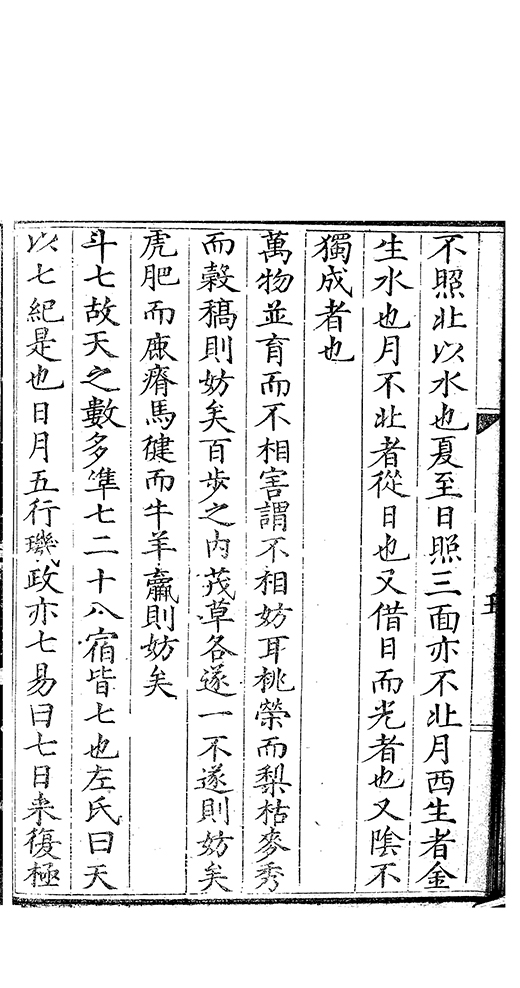 不照北以水也夏至日照三面亦不北月西生者金
生水也月不北者從日也又借日而光者也又陰不
獨成者也
萬物並育而不相害謂不相妨耳桃榮而梨枯麥秀
而穀稿則妨矣百步之內茂草各遂一不遂則妨矣
虎肥而鹿瘠馬健而牛羊羸則妨矣
斗七故天之數多準七二十八宿皆七也左氏曰天
以七紀是也日月五行璣政亦七易曰七日来復極